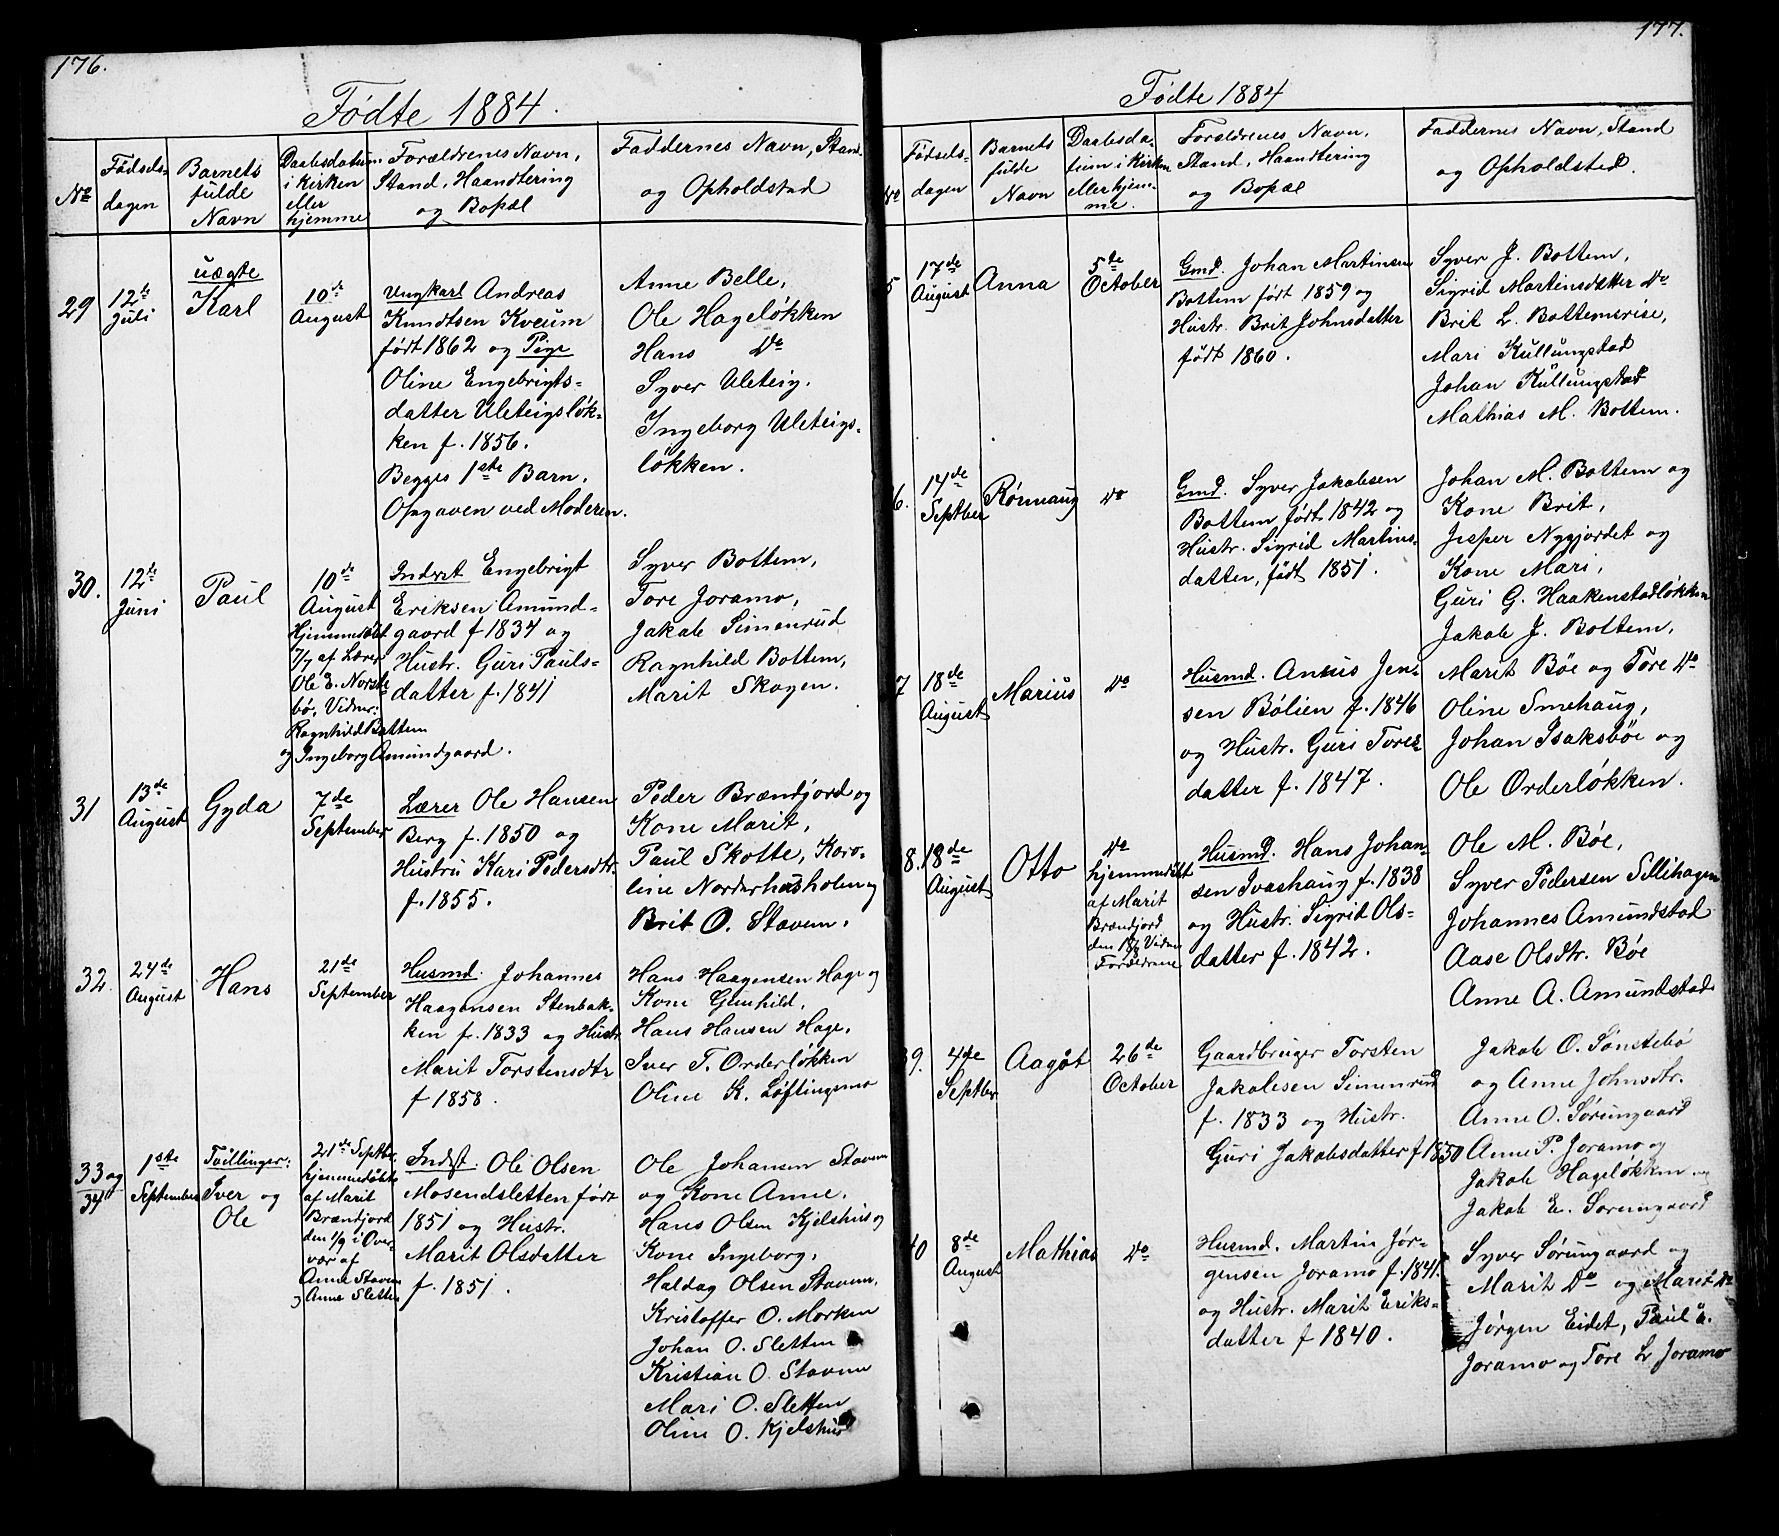 176.
Fødte 1884.
No
Fødsels-
dagen
Barnets
fulde
Navn
Daabsdatum
i Kirken
eller
hjemme
Forældrenes Navn,
Stand, Haandtering
og Bopæl
Faddernes Navn, Stand
og Opholdstad
29
12te
Juli
uægte
Karl
10de
August
Ungkarl Andreas
Knudtsen Kveum
født 1862 og Pige
Oline Engebrigts-
datter Uleteigsløk-
ken f. 1856.
Begges 1ste Barn.
Opgaven ved Moderen.
Anne Belle,
Ole Hageløkken
Hans Do
Syver Uleteig.
Ingeborg Uleteigs-
løkken.
30.
12te
Juni
Paul
10de
August
Hjemmedøbt
7/7 af Lærer
Ole E. Norste-
bø, Vidner:
Ragnhild Bottem
og Ingeborg Amundgaard.
Inderst Engebrigt
Eriksen Amund-
gaard f 1834 og
Hustr. Guri Pauls-
datter f. 1841
Syver Bottem,
Tore Joramo,
Jakob Simenrud
Ragnhild Bottem,
Marit Skogen.
31
13de
August
Gyda
7de
September
Lærer Ole Hansen
Berg f. 1850 og
Hustru Kari Pedersdtr.
f. 1855.
Peder Brændjord og
Kone Marit,
Paul Skotte, Karo-
line Norderhusholen og
Brit O. Stavem.
32.
24de
August
Hans
21de
September
Husmd. Johannes
Haagensen Stenbak-
ken f. 1833 og Hustr.
Marit Torstensdtr
f 1858.
Hans Haagensen Hage og
Kone Gunhild,
Hans Hansen Hage,
Iver T. Orderløkken
Oline K. Løftingsmo
33 og
34
1ste
September
Tvillinger:
Iver og
Ole
21de Septbr.
hjemmedøbte
af Marit
Brændjord
den 1/9 i Over-
vær af
Anne Stavem
og Anne Sletten
Indst. Ole Olsen
Mosendsletten født
1851 og Hustr.
Marit Olsdatter
f. 1851.
Ole Johansen Stavem
og Kone Anne.
Hans Olsen Kjelshus og
Kone Ingeborg,
Haldag Olsen Stavem,
Kristoffer O. Morken
Johan O. Sletten
Kristian O. Stavem
Mari O. Sletten
Oline O. Kjelshus
177.
Fødte 1884
No
Fødsels-
dagen
Barnets
fulde
Navn
Daabsda-
tum i Kirken
eller hjem-
me.
Forældrenes Navn,
Stand, Haandtering
og Bopæl
Faddernes Navn, Stand
og Opholdsted.
5
17de
August
Anna
5de
October
Gmd. Johan Martinsen
Bottem født 1859 og
Hustr. Brit Johnsdatter
født 1860.
Syver J. Bottem,
Sigrid Martinsdatter Do
Brit L. Bottemsrise,
Mari Kullungstad
Johan Kullungstad
Mathias M. Bottem.
6.
14de
Septber
Rønnaug
Do
Gmd. Syver Jakobsen
Bottem født 1842 og
Hustr. Sigrid Martins-
datter, født 1851.
Johan M. Bottem og
Kone Brit,
Jesper Nygjordet og
Kone Mari,
Guri G. Haakenstadløkken
Jakob J. Bottem,
7
18de
August
Marius
Do
Husmd. Antus Jen-
sen Bølien f. 1846
og Hustr. Guri Tores-
datter f. 1847.
Marit Bøe og Tore Do
Oline Smehaug,
Johan Isaksbøe og
Ole Orderløkken.
8.
18de
August
Otto
Do
hjemmedøbt
af Marit
Brændjord
den 18/8 Vidner
Forældrene
Husmd. Hans Johan-
sen Ivashaug f. 1838
og Hustr. Sigrid Ols-
datter f. 1842.
Ole M. Bøe,
Syver Pedersen Sellihagen
Johannes Amundstad
Aase Olsdtr. Bøe
Anne A. Amundstad.
39.
4de
Septbr
Aagot
26de
October
Gaardbruger Torsten
Jakobsen Simenrud
f. 1833 og Hustr.
Guri Jakobsdatter f 1850
Jakob O. Sønstebø
og Anne Johnsdtr.
Anne O. Sørumgaard
Anne P. Joramo og
Jakob Hageløkken og
Jakob E. Sørumgaard
40
8de
August
Mathias
Do
Husmd. Martin Jør-
gensen Joramo f. 1841.
og Hustr. Marit Eriks-
datter f 1840.
Syver Sørumgaard og
Marit Do og Marit Do
Jørgen Eidet, Paul
Joramo og Tore L Joramo